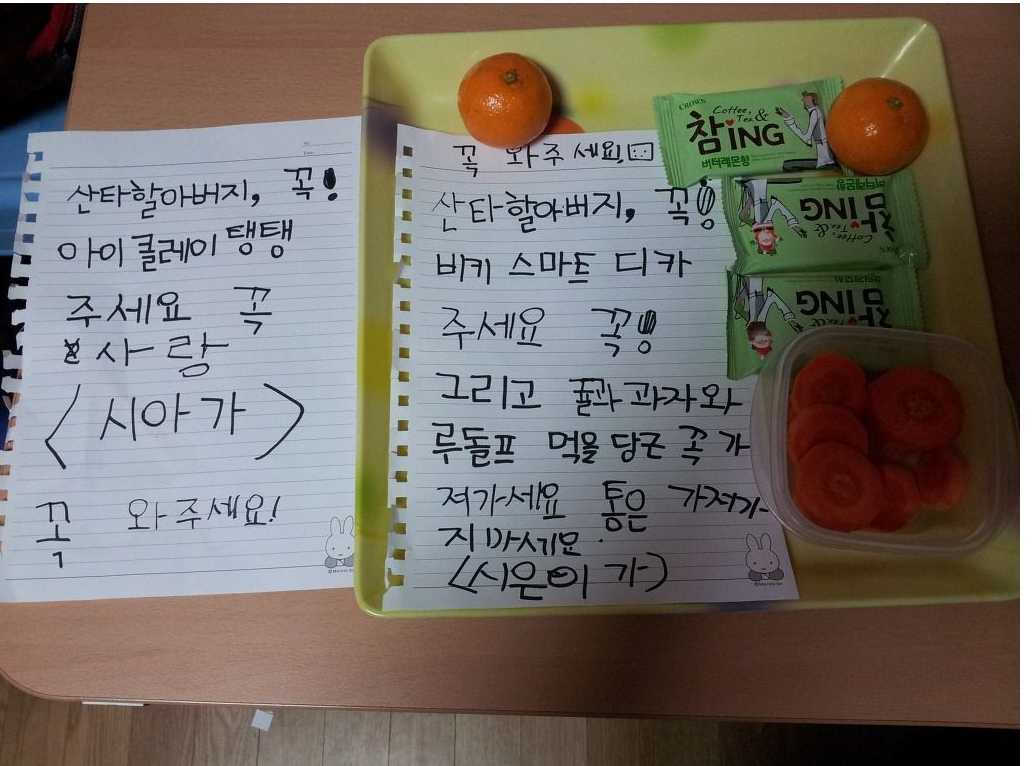 산타할아버지, 꼭!
아이클레이 탱탱
주세요 꼭
사랑
〈시아가〉
꼭 와주세요!
꼭 와주세요!
산타할아버지, 꼭!
비키 스마트 디카
주세요 꼭!
그리고 귤과 과자와
루돌프 먹을 당근 꼭 가
져가세요 통은 가져가
지 마세요.
〈시은이가〉
CROWN
Coffee, Tea &
참ING
버터레몬향
Coffee, Tea &
참ING
버터레몬향
참ING